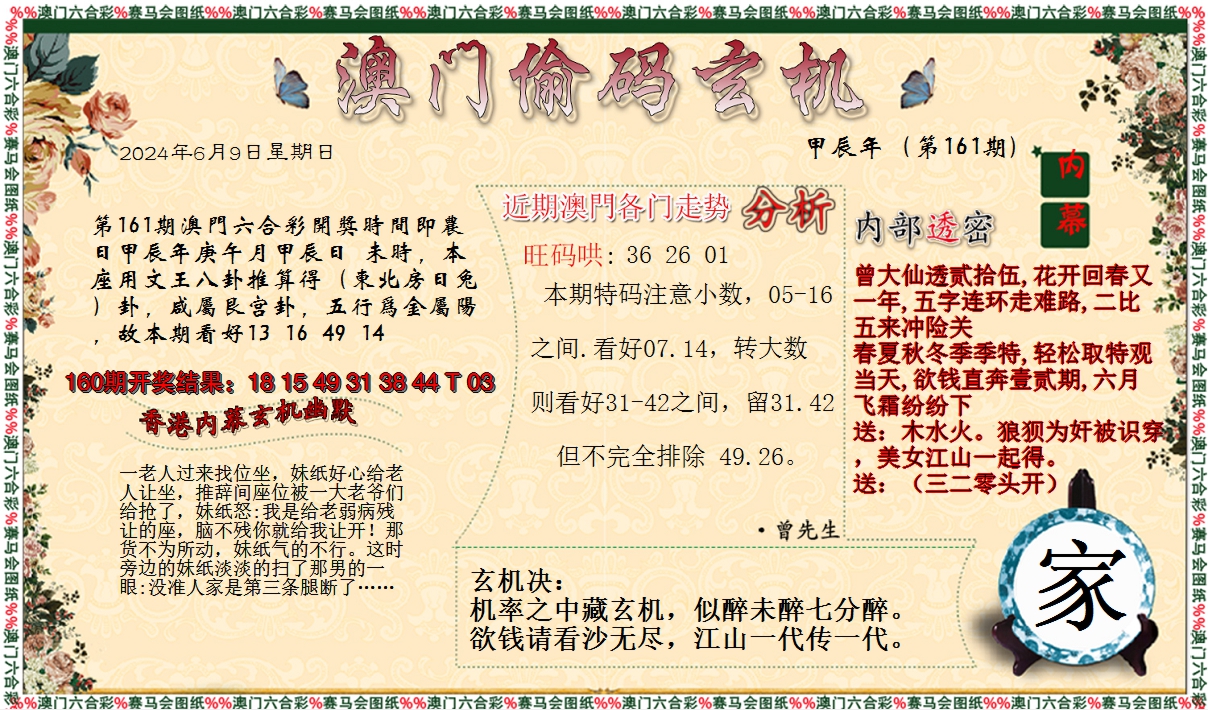 %%澳门六合彩%赛马会图纸%%澳门六合彩%赛马会图纸%%澳门六合彩%赛马会图纸%%澳门六合彩%赛马会图纸%%澳门六合彩%赛马会图纸%%澳门六合彩%赛马会图纸%%
澳门偷码玄机
2024年6月9日星期日
甲辰年（第161期）
内幕
第161期澳門六合彩開獎時間即農
日甲辰年庚午月甲辰日 未時，本
座用文王八卦推算得（東北房日兔
）卦，咸屬艮宫卦，五行爲金屬陽
，故本期看好13 16 49 14
160期开奖结果：18 15 49 31 38 44 T 03
香港内幕玄机幽默
一老人过来找位坐，妹纸好心给老
人让坐，推辞间座位被一大老爷们
给抢了，妹纸怒:我是给老弱病残
让的座，脑不残你就给我让开！那
货不为所动，妹纸气的不行。这时
旁边的妹纸淡淡的扫了那男的一
眼:没准人家是第三条腿断了……
近期澳門各门走势 分析
旺码哄: 36 26 01
本期特码注意小数，05-16
之间.看好07.14，转大数
则看好31-42之间，留31.42
但不完全排除 49.26。
·曾先生
内部透密
曾大仙透贰拾伍,花开回春又
一年,五字连环走难路,二比
五来冲险关
春夏秋冬季季特,轻松取特观
当天,欲钱直奔壹贰期,六月
飞霜纷纷下
送：木水火。狼狈为奸被识穿
，美女江山一起得。
送：（三二零头开）
玄机决：
机率之中藏玄机，似醉未醉七分醉。
欲钱请看沙无尽，江山一代传一代。
家
%%澳门六合彩%赛马会图纸%%澳门六合彩%赛马会图纸%%澳门六合彩%赛马会图纸%%澳门六合彩%赛马会图纸%%澳门六合彩%赛马会图纸%%澳门六合彩%赛马会图纸%%